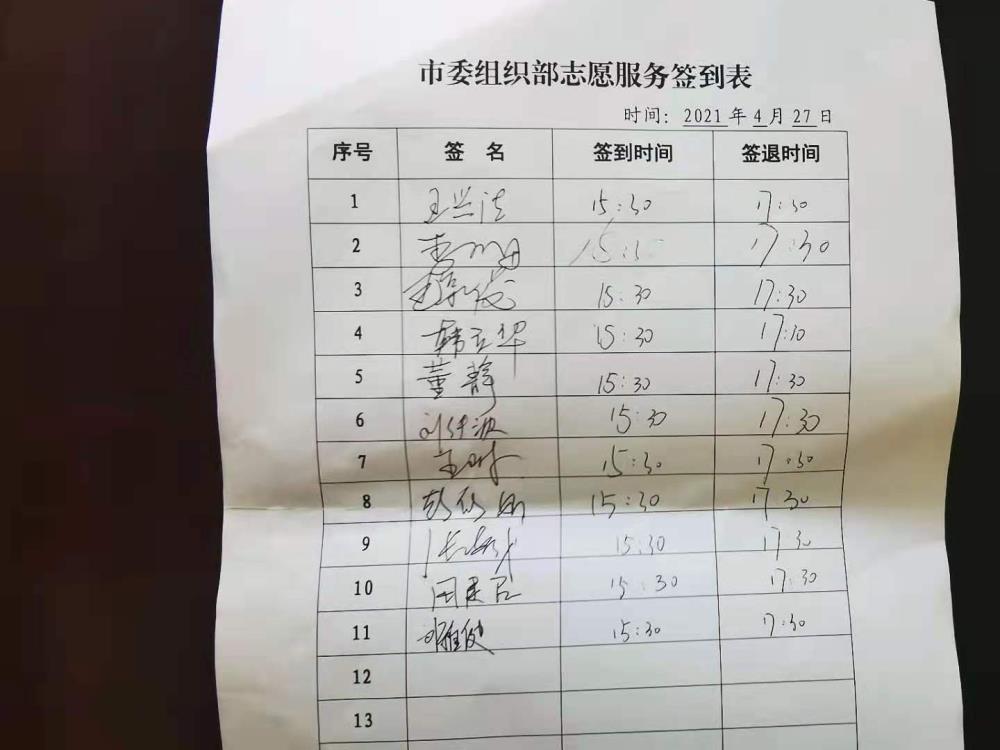 市委组织部志愿服务签到表
时间：2021年4月27日
序号 签 名 签到时间 签退时间
1 王兴法 15:30 17:30
2 17:30
3 15:30 17:30
4 韩立华 15:30 17:10
5 董静 15:30 17:30
6 15:30 17:30
7 15:30 17:30
8 15:30 17:30
9 15:30 17:30
10 15:30 17:30
11 15:30 17:30
12
13